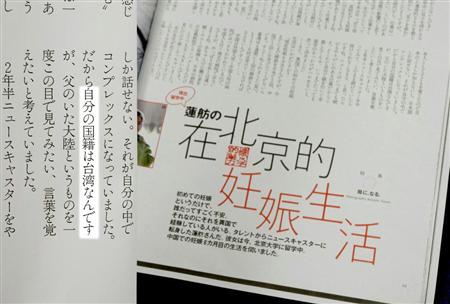 しか話せない。それが自分の中で
コンプレックスになっていました。
だから自分の国籍は台湾なんです
が、父のいた大陸というものを一
度この目で見てみたい、言葉を覚
えたいと考えていました。
2年半ニュースキャスターをや
蓮舫の
在北京的
妊娠生活
特集
母に、なる。
初めての妊娠
というだけで、
誰だってすごく不安。
それなのにそれを異国で
経験している人がいる。タレントからニュースキャスターに
転身した蓮舫さんだ。彼女は今、北京大学に留学中。
中国での妊娠8カ月目の生活を伺いました。